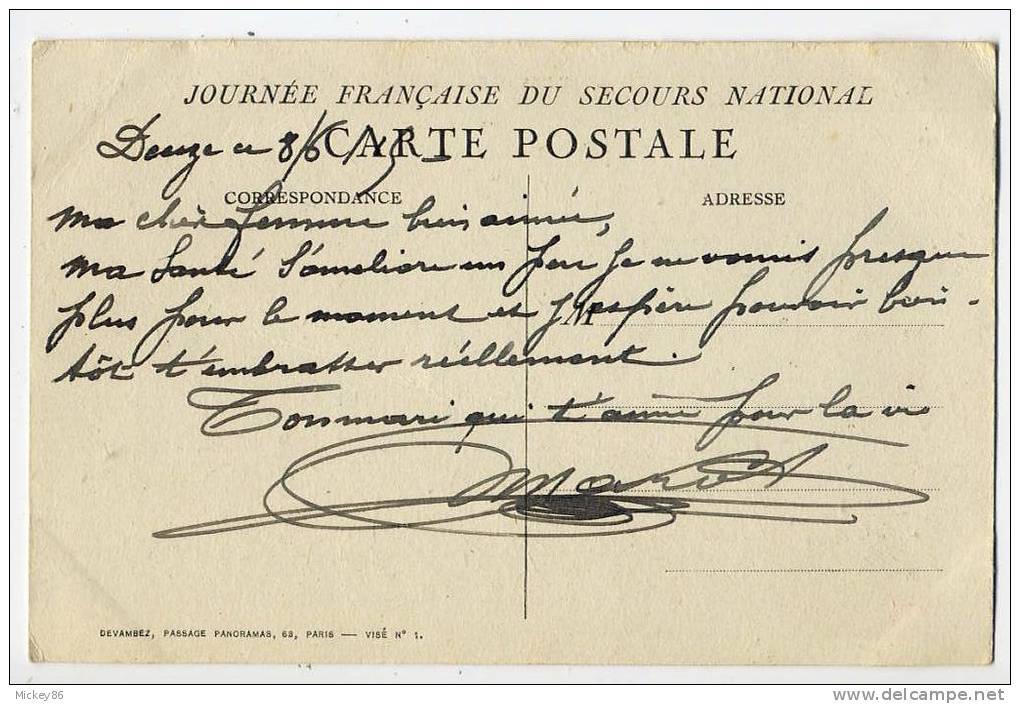 JOURNÉE FRANÇAISE DU SECOURS NATIONAL
CARTE POSTALE
ce 8/6/15
CORRESPONDANCE
ADRESSE
Ma chère femme bien aimée,
Ma santé s'améliore un peu je ne vomis presque
plus pour le moment et j'espère pouvoir bien-
M
tôt t'embrasser réellement.
Ton mari qui t'aime pour la vie
DEVAMBEZ, PASSAGE PANORAMAS, 63, PARIS — VISÉ N° 1.
Mickey86
http://www.delcampe.net